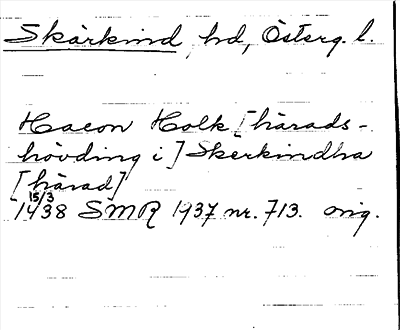 Skärkind, hd, Österg. l.
Hacon Holk [härads-
hövding i] Skerkindha
[härad]
15/3
1438 SMR 1937 nr. 713. orig.